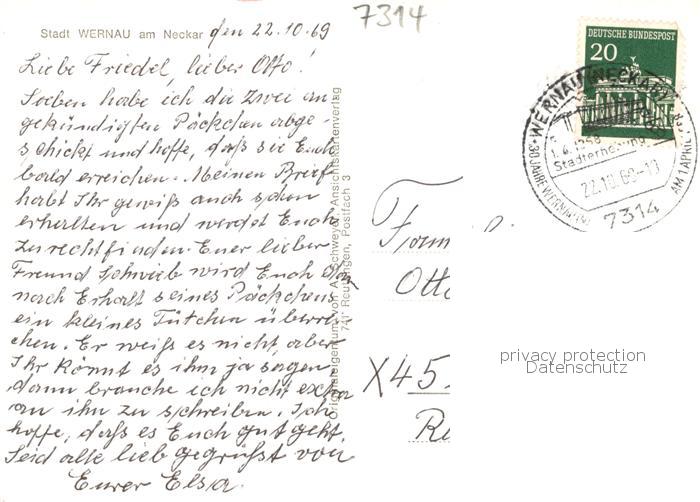 7314
Stadt WERNAU am Neckar den 22.10.69
Liebe Friedel, lieber Otto!
Soeben habe ich die zwei an
gekündigten Päckchen abge-
schickt und hoffe, daß sie Euch
bald erreichen. Meinen Brief
habt Ihr gewiß auch schon
erhalten und werdet Euch
zurechtfinden. Euer lieber
Freund Schwieb wird Euch dann
nach Erhalt seines Päckchens
ein kleines Tütchen überrei-
chen. Er weiß es nicht, aber
Ihr könnt es ihm ja sagen
dann brauche ich nicht extra
an ihn zu schreiben. Ich
hoffe, daß es Euch gut geht.
Seid alle lieb gegrüßt von
Eurer Elsa.
Originaleigentum von Ansichtskartenverlag
741 Reutlingen, Postfach 3
DEUTSCHE BUNDESPOST
20
WERNAU (NECKAR)
1.4.1968
Stadterhebung
22.10.69-13
30 JAHRE WERNAU
AM 1. APRIL
7314
Fam
Otto
X45
privacy protection
Datenschutz